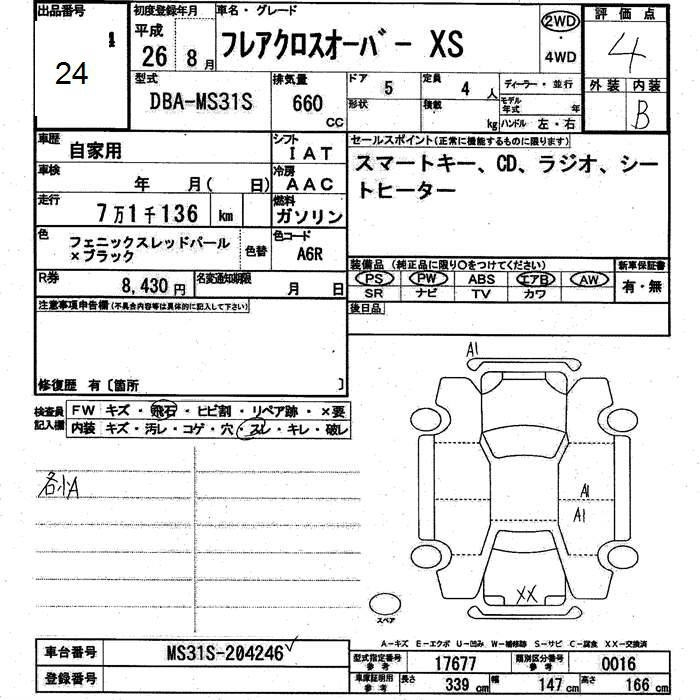 出品番号
1
24
初度登録年月
平成
26 8月
車名・グレード
フレアクロスオーバー XS
2WD
・
4WD
評価点
4
外装 内装
B
型式
DBA-MS31S
排気量
660
CC
ドア 5
定員 4 人
形状
積載 kg
ディーラー・並行
モデル年式 年
ハンドル 左・右
車歴
自家用
シフト
IAT
車検
年 月( 日)
冷房
AAC
走行
7万1千136 km
燃料
ガソリン
色
フェニックスレッドパール
×ブラック
色替
色コード
A6R
R券
8,430円
名変通知期限
月 日
セールスポイント(正常に機能するものに限ります)
スマートキー、CD、ラジオ、シー
トヒーター
装備品(純正品に限り○をつけてください)
PS PW ABS エアB AW
SR ナビ TV カワ
新車保証書
有・無
後日品
注意事項申告欄(不具合内容等は具体的に記入して下さい)
修復歴 有〔箇所 〕
検査員
記入欄
FW キズ・飛石・ヒビ割・リペア跡・×要
内装 キズ・汚レ・コゲ・穴・スレ・キレ・破レ
各小A
A1
A1
A1
XX
スペア
A-キズ E-エクボ U-凹み W-補修跡 S-サビ C-腐食 XX-交換済
車台番号
MS31S-204246
登録番号
型式指定番号
参考
17677
類別区分番号
参考
0016
車庫証明用
参考
長さ 339 cm
幅 147 cm
高さ 166 cm